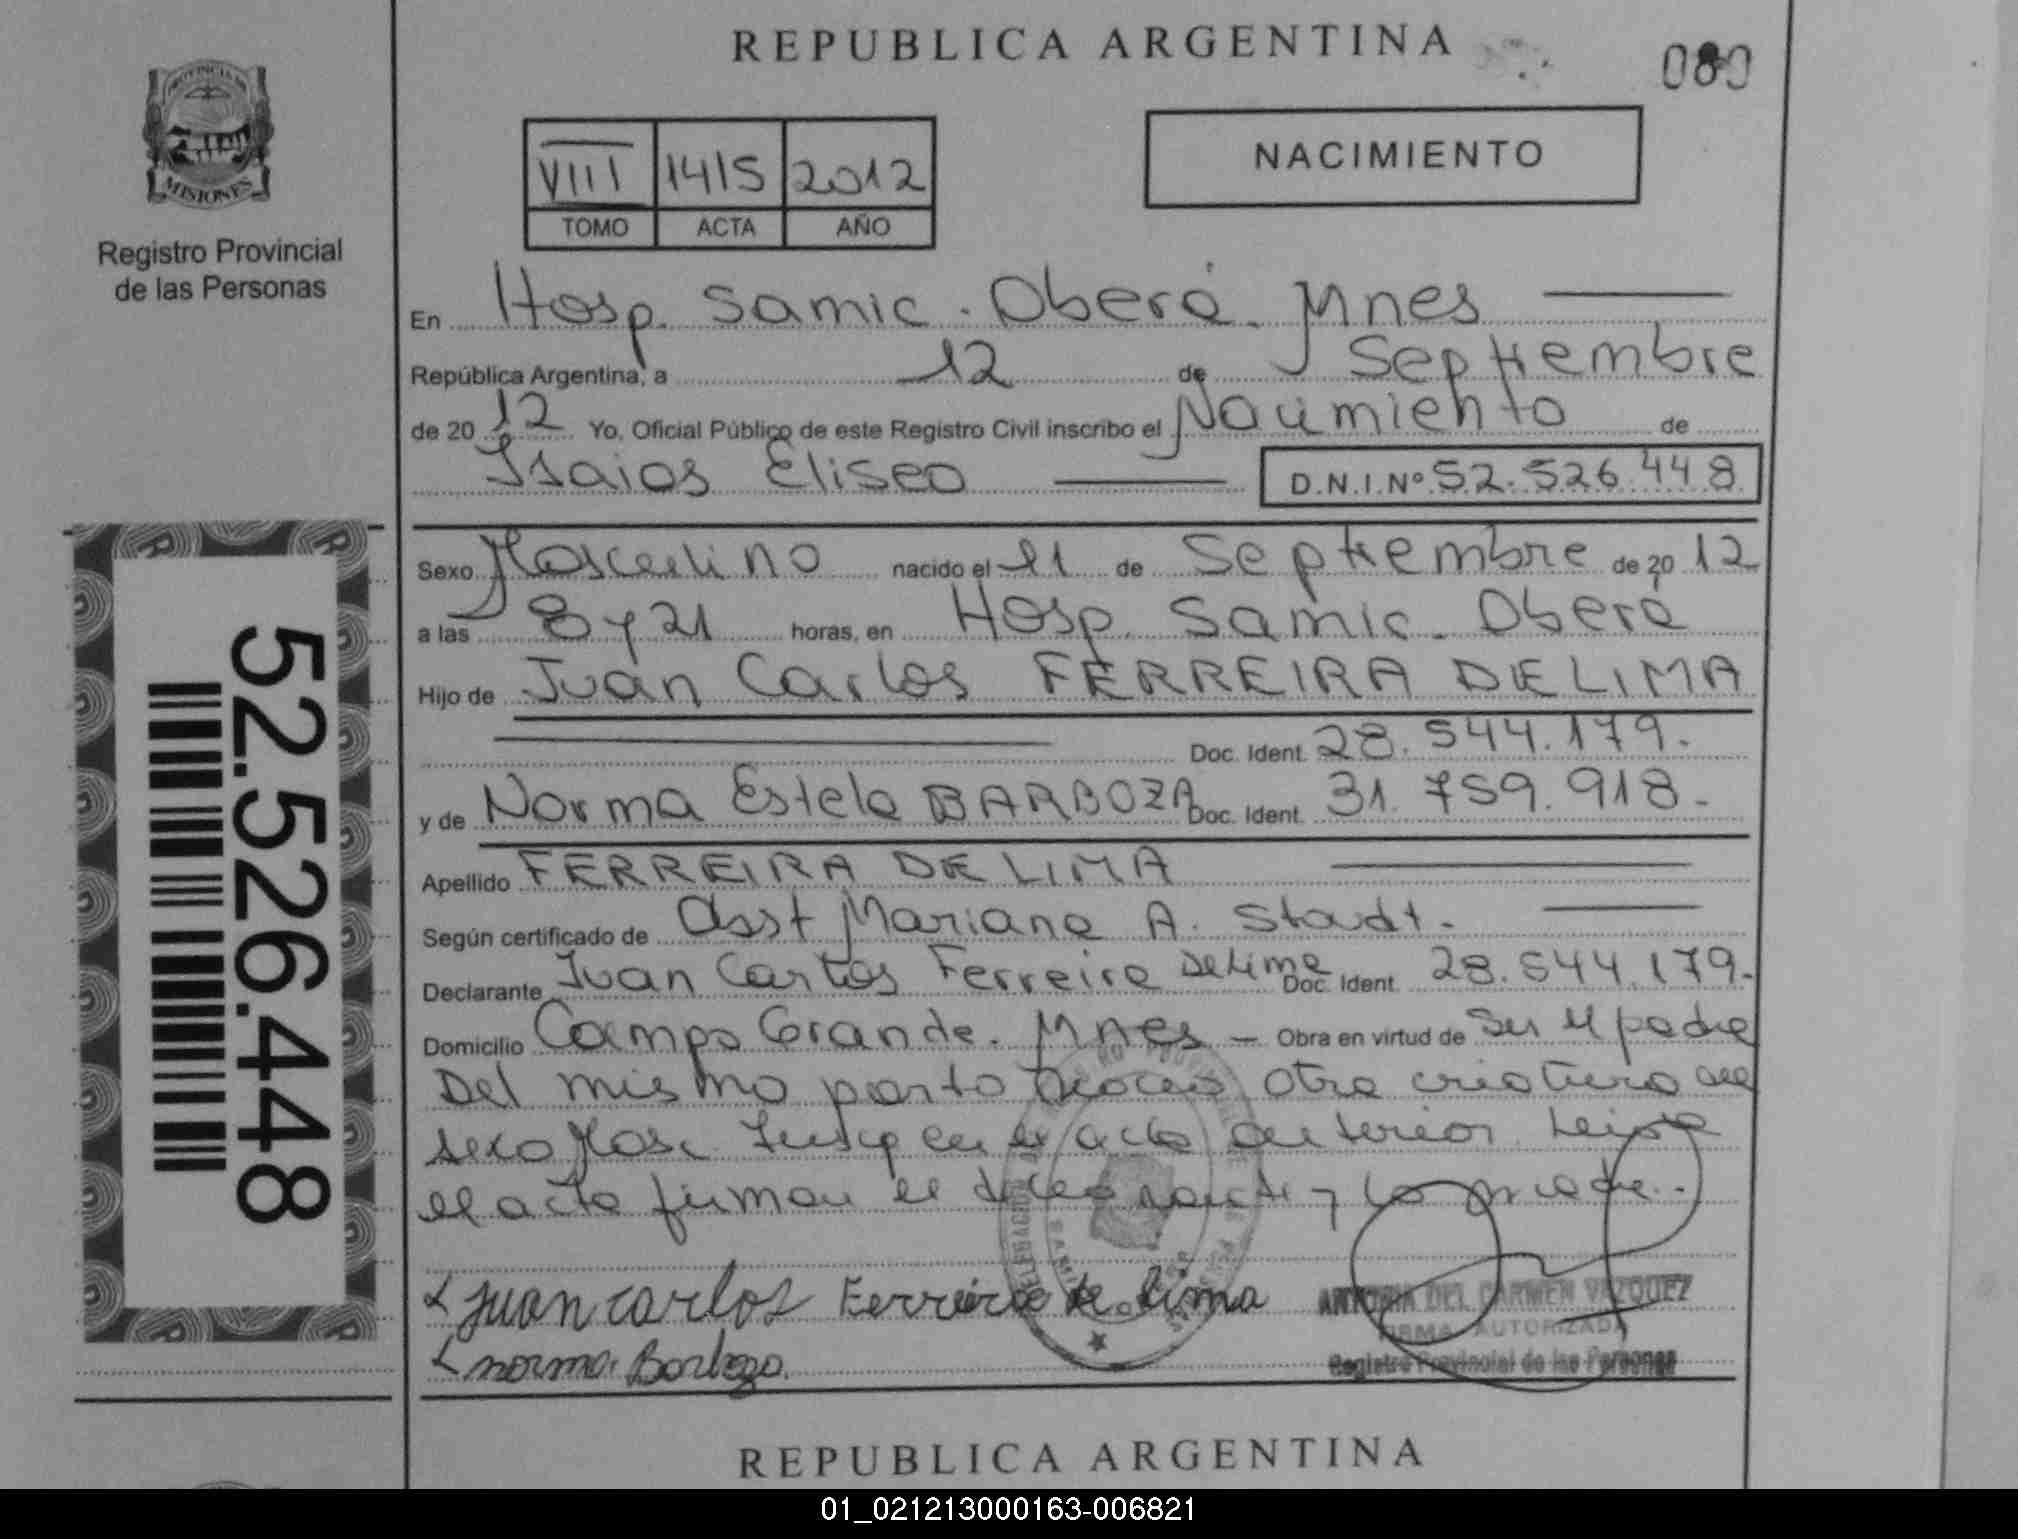 REPUBLICA ARGENTINA
080
PROVINCIA DE
MISIONES
Registro Provincial
de las Personas
VIII 1415 2012
TOMO ACTA AÑO
NACIMIENTO
En Hosp. Samic. Oberá. Mnes
República Argentina, a 12 de Septiembre
de 20 12 Yo, Oficial Público de este Registro Civil inscribo el Nacimiento de
Isaias Eliseo D.N.I.Nº 52.526.448
Sexo Masculino nacido el 11 de Septiembre de 20 12
a las 8 y 21 horas, en Hosp. Samic. Oberá
Hijo de Juan Carlos FERREIRA DE LIMA
Doc. Ident. 28.544.179.
y de Norma Estela BARBOZA Doc. Ident. 31.759.918.
Apellido FERREIRA DE LIMA
Según certificado de Obst Mariana A. Stadt.
Declarante Juan Carlos Ferreira De Lima Doc. Ident. 28.544.179.
Domicilio Campo Grande. Mnes - Obra en virtud de Ser el padre
Del mismo parto nació otra criatura de
sexo Masc. en el acta anterior. Leida
el acta firman el declarante y la madre.
Juan Carlos Ferreira de Lima
norma Barboza.
ANTONIA DEL CARMEN VAZQUEZ
FIRMA AUTORIZADA
Registro Provincial de las Personas
52.526.448
REPUBLICA ARGENTINA
01_021213000163-006821